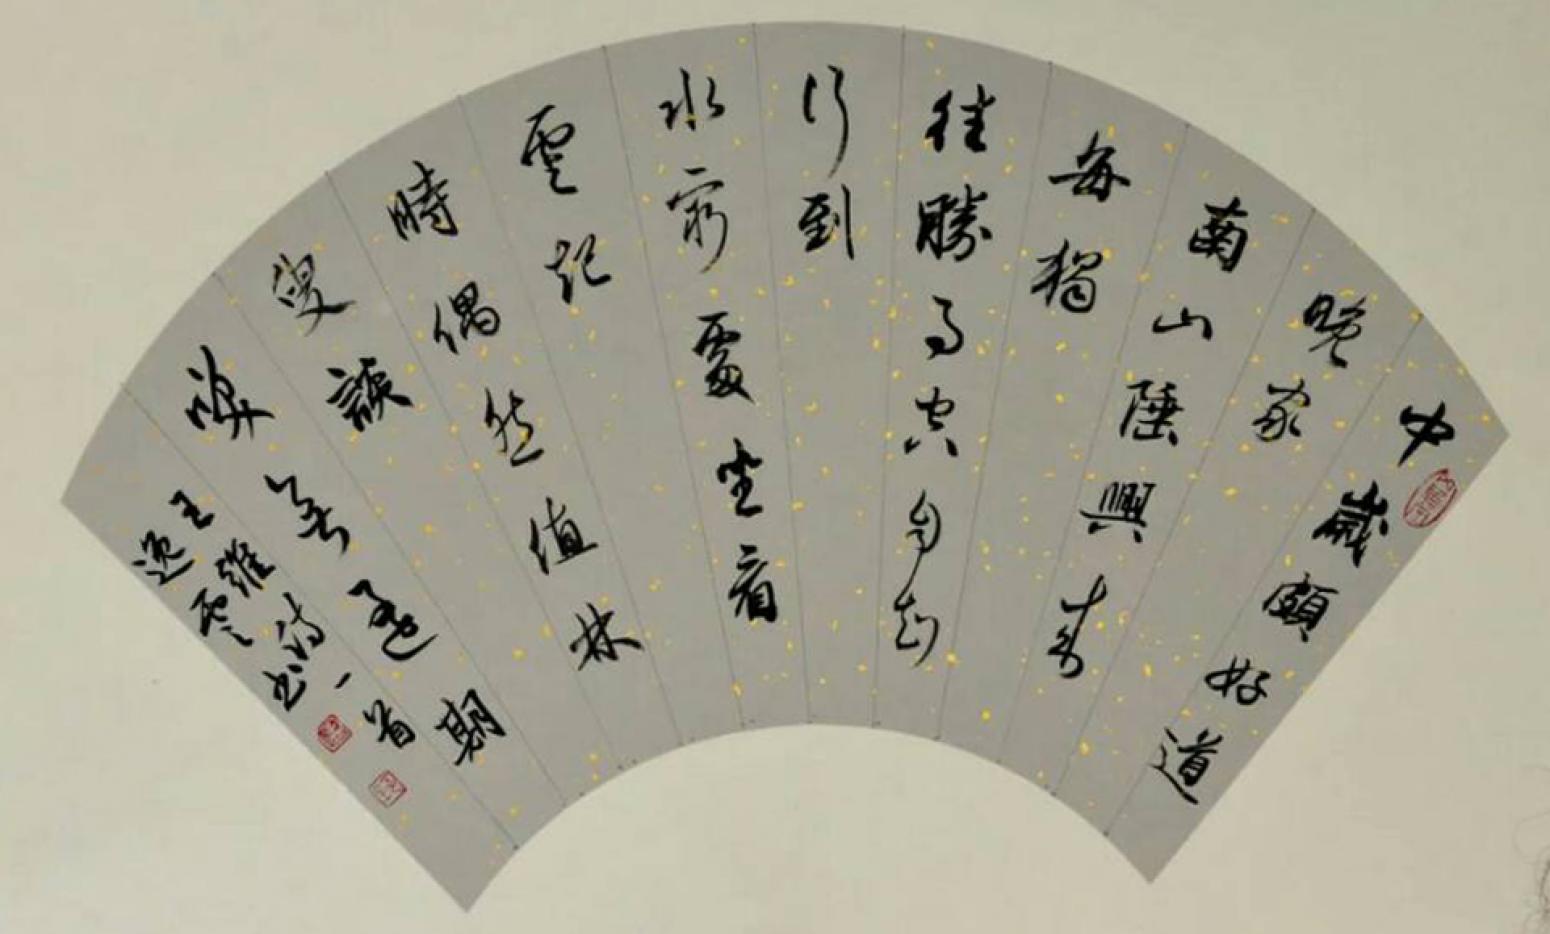 中歲頗好道
晚家
南山陲興來
每獨
往勝事空自知
行到
水窮處坐看
雲起
時偶然值林
叟談
咲無還期
王維詩一首
逸雲書